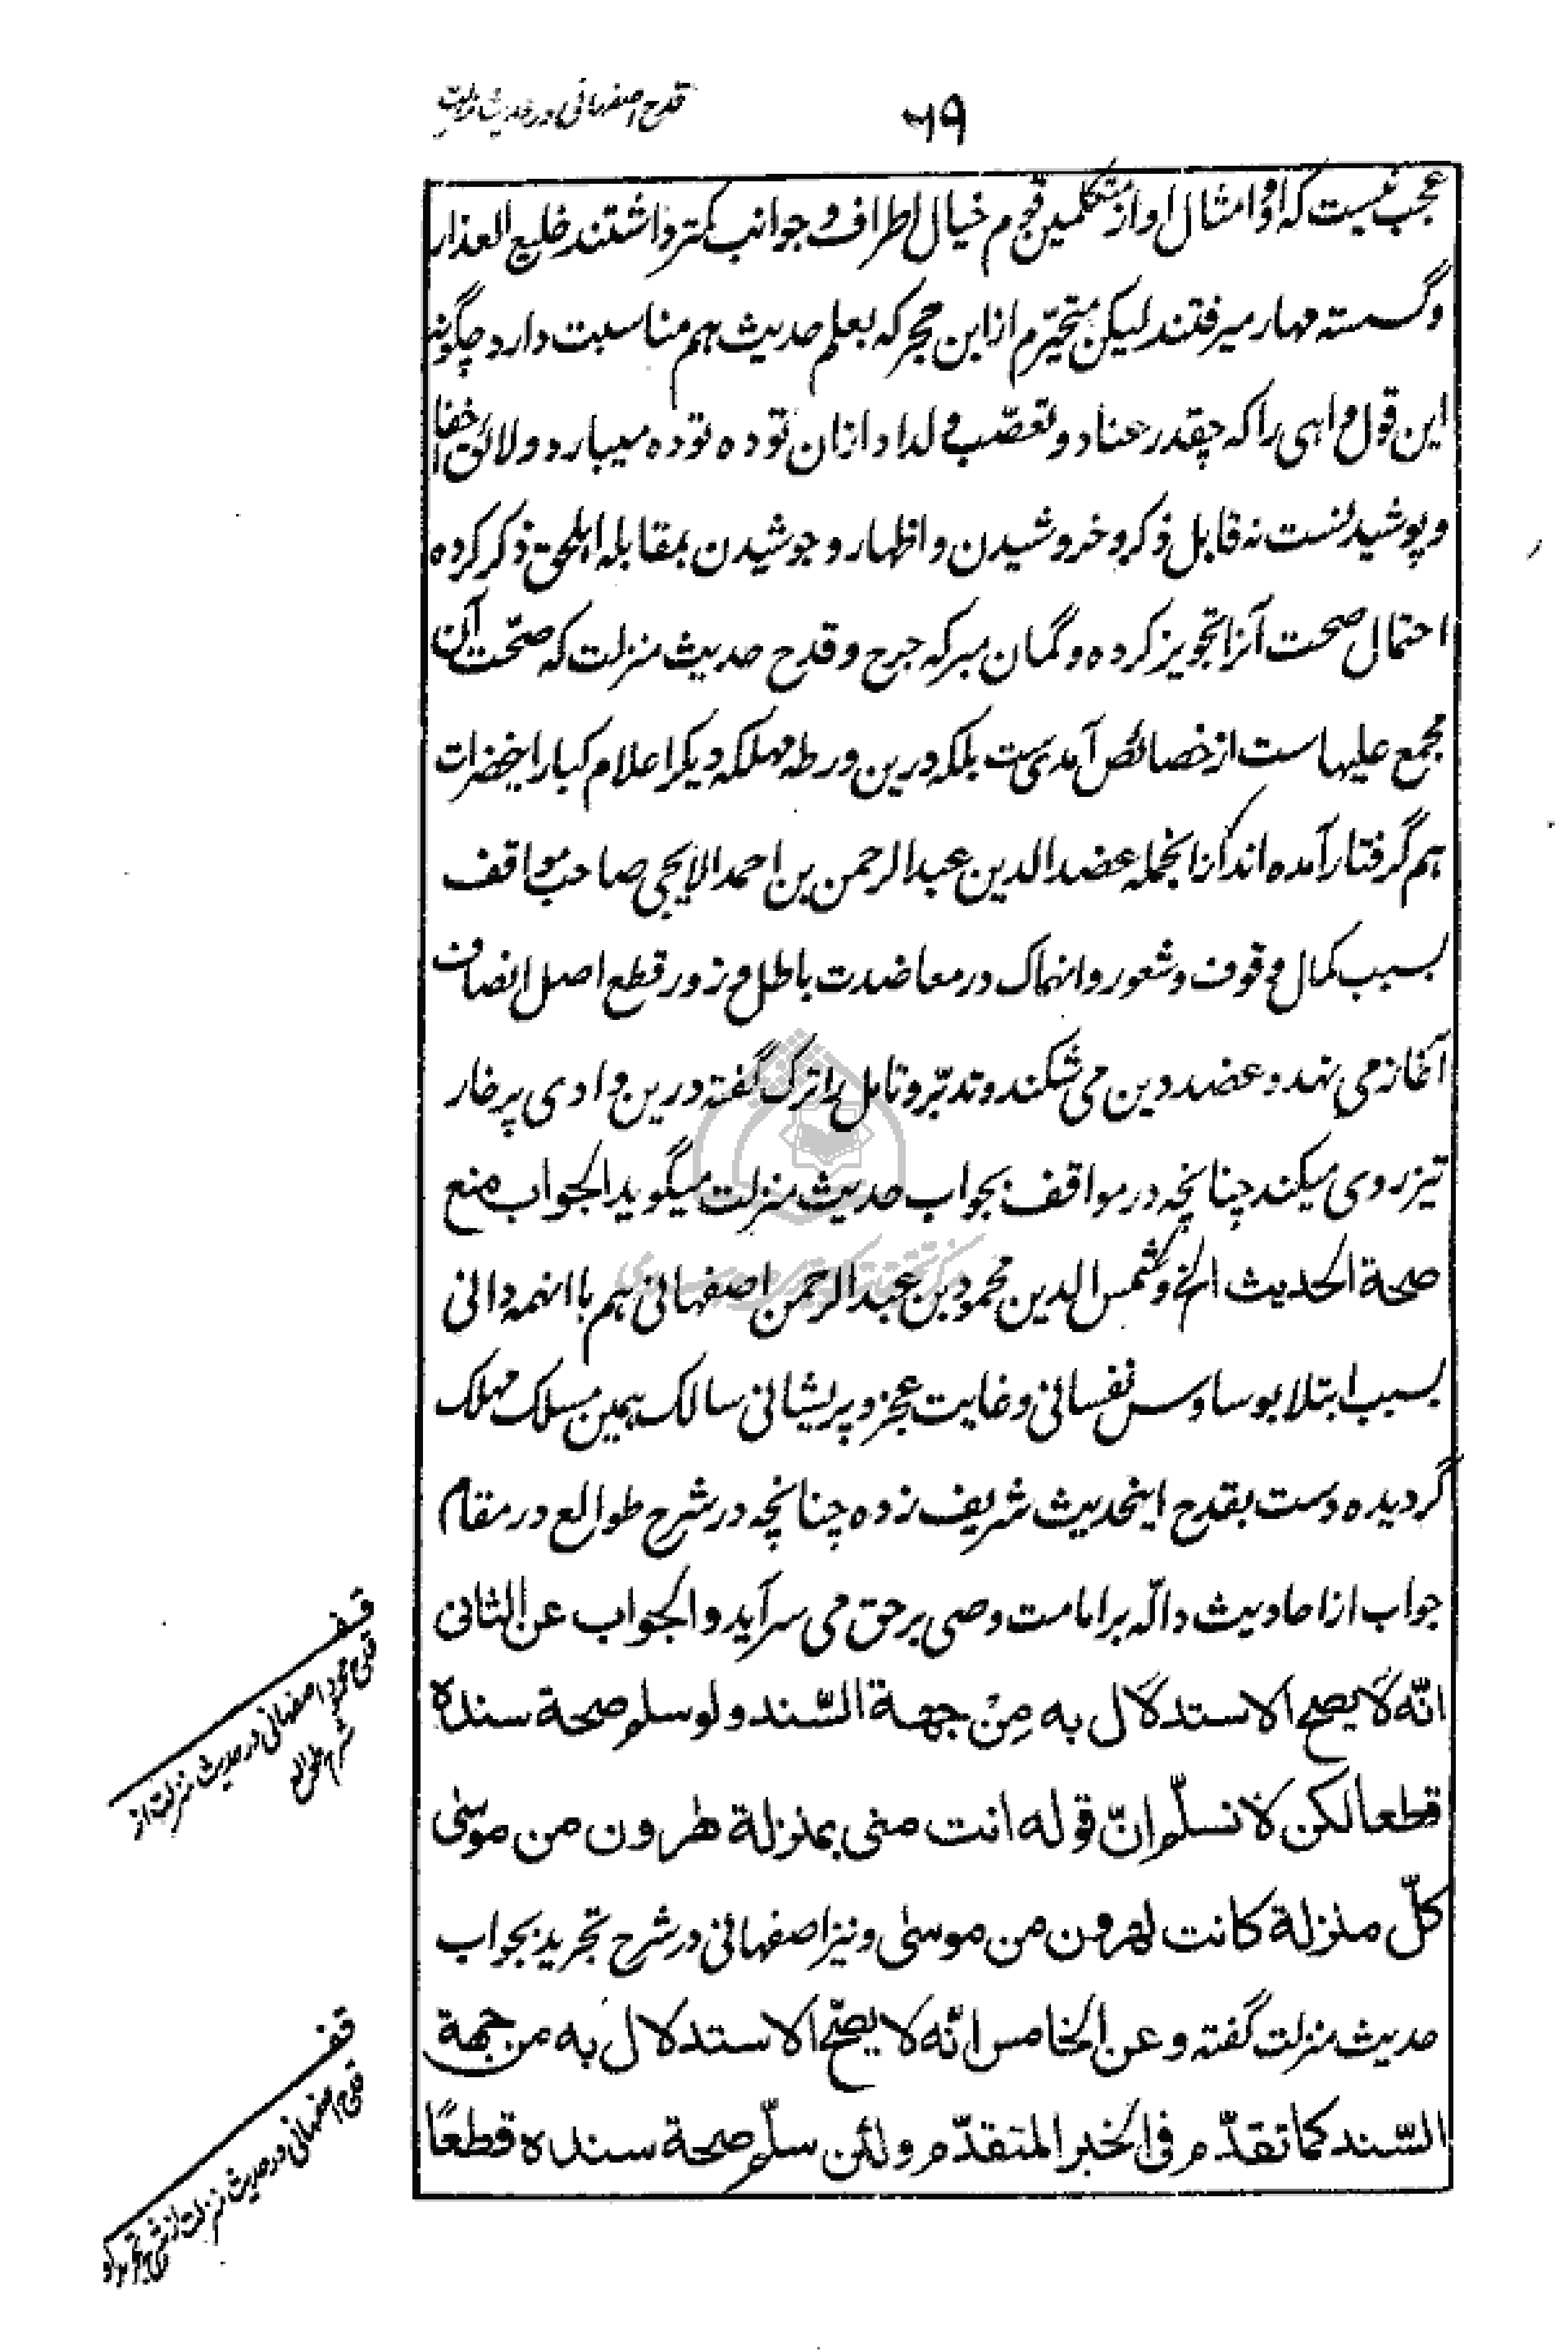 ۶۹
قدح اصفهانی در حدیث منزلت
عجب نیست که او و امثال او از متکلمین قوم خیال اطراف و جوانب کمتر داشتند خلیع العذار
و گسسته مهار میرفتند لیکن متحیّرم از ابن حجر که بعلم حدیث هم مناسبت دارد چگونه
این قول واهی را که چقدر عناد و تعصّب و لداد ازان توده توده میبارد و لائق اخفا
و پوشیدنست نه قابل ذکر و خروشیدن و اظهار و جوشیدن بمقابله اهلحق ذکر کرده
احتمال صحت آنرا تجویز کرده و گمان مبر که جرح و قدح حدیث منزلت که صحّت آن
مجمع علیهاست از خصائص آمدی ست بلکه درین ورطه مهلکه دیگر اعلام کبار اینحضرات
هم گرفتار آمده اند ازانجمله عضد الدین عبدالرحمن بن احمد الایجی صاحب مواقف
بسبب کمال وقوف و شعور و انهماک در معاضدت باطل و زور قطع اصل انصاف
آغاز می نهد و عضد دین می شکند و تدبّر و تامل را ترک گفته درین وادی پرخار
تیز روی میکند چنانچه در مواقف بجواب حدیث منزلت میگوید الجواب منع
صحة الحدیث الخ و شمس الدین محمود بن عبدالرحمن اصفهانی هم با انهمه دانی
بسبب ابتلا بوساوس نفسانی و غایت عجز و پریشانی سالک همین مسلک مهلک
گردیده دست بقدح اینحدیث شریف زده چنانچه در شرح طوالع در مقام
جواب از احادیث دالّه بر امامت وصی برحق می سرآید و الجواب عن الثانی
انّه لا یصح الاستدلال به مِنْ جهة السّند ولو سلم صحة سنده
قطعا لکن لا نسلّم انّ قوله انت منی بمنزلة هٰرون من موسٰی
کلّ منزلة کانت لهٰرون من موسٰی و نیز اصفهانی در شرح تجرید بجواب
حدیث منزلت گفته و عن الخامس انّه لا یصحّ الاستدلال به من جهة
السّند کما تقدّم فی الخبر المتقدّم و لئن سلّم صحة سنده قطعًا
قف
قدح محمود اصفهانی در حدیث منزلت از
شرح طوالع
قف
قدح اصفهانی در حدیث منزلت از شرح تجرید